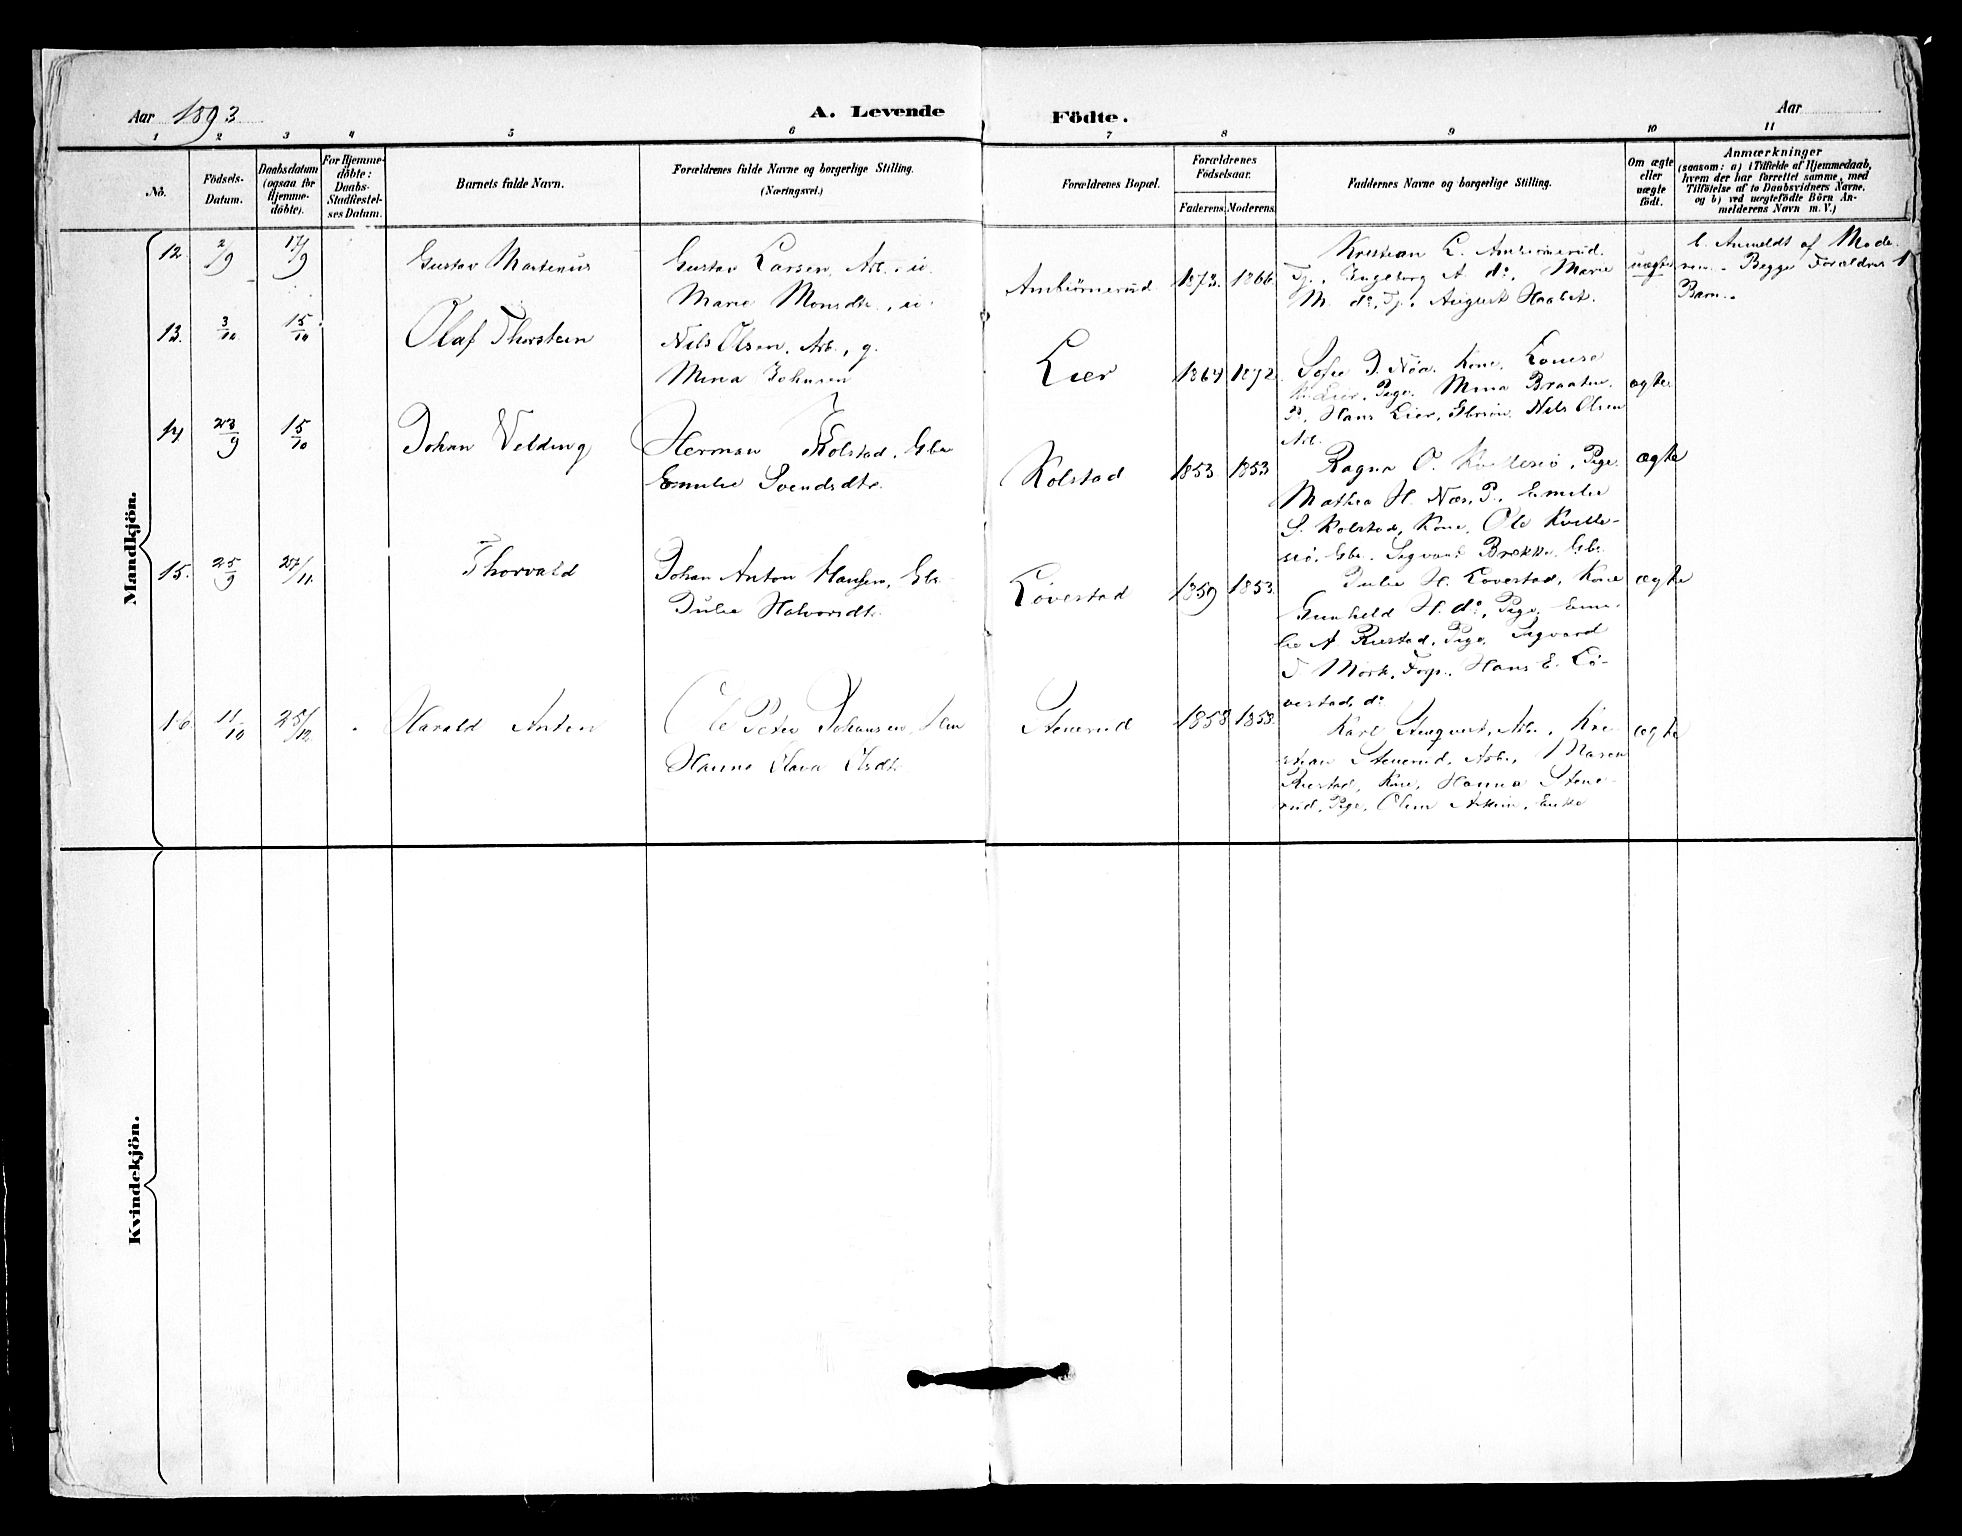 Aar 1893
A. Levende Födte.
Aar
1 2 3 4 5 6 7 8 9 10 11
No.
Födsels-
Datum.
Daabsdatum
(ogsaa for
Hjemme-
döbte).
For Hjemme-
döbte:
Daabs-
Stadfæstel-
ses Datum.
Barnets fulde Navn.
Forældrenes fulde Navne og borgerlige Stilling.
(Næringsvei.)
Forældrenes Bopæl.
Forældrenes
Födselsaar.
Faderens. Moderens.
Faddernes Navne og borgerlige Stilling.
Om ægte
eller
uægte
födt.
Anmærkninger
(saasom: a) i Tilfælde af Hjemmedaab,
hvem der har forrettet samme, med
Tilföielse af to Daabsvidners Navne.
og b) ved uægtefödte Börn An-
melderens Navn m. V.)
Mandkjön.
12. 2/9 17/9
Gustav Martinus
Gustav Larsen, Arb., u.
Marie Monsdtr., u.
Ambiörnerud
1873. 1866.
Kristian L. Ambiörnerud.
Tj., Ingeborg A. do, Marie
M. do, Tj., August Haabet.
uægte
b. Anmeldt af Mode-
ren. - Begge Forældres 1
Barn.
13. 3/10 15/10
Olaf Thorstein
Nils Olsen, Arb., g.
Mina Johnsen
Lier
1864 1872
Sofie J. Nöss. Kone, Lovise
Lier, Pige. Mina Braaten,
P., Hans Lier, Nils Olsen
Arb.
ægte
14 23/9 15/10
Johan Velding
Herman Kolstad, Gbr.
Emilie Svendsdtr.
Kolstad
1853 1853
Ragna O. Kvellesiö, Pige.
Mathea H. Næs, P., Emilie
S. Kolstad, Kone, Ole Kvelle-
siö, Gbr. Sigvard Brække, Gbr.
ægte
15. 25/9 27/11.
Thorvald
Johan Anton Hansen, Gbr.
Julie Halvorsdtr.
Lövestad
1859 1853.
Julie H. Lövestad, Kone
Gunhild H. do, Pige, Emi-
lie A Rustad, Pige, Sigvard
T Mörk, Forp., Hans E. Lö-
vestad, do
ægte
16 11/10 25/12
Harald Anton
Ole Peter Johansen,
Hanna Olava Olsdtr.
Stenerud
1858 1853.
Karl Stenqvist, Arb., Kri-
stian Stenerud, Arb., Maren
Rustad, Kone, Hanna Stene-
rud, Pige, Enke
ægte
Kvindekjön.